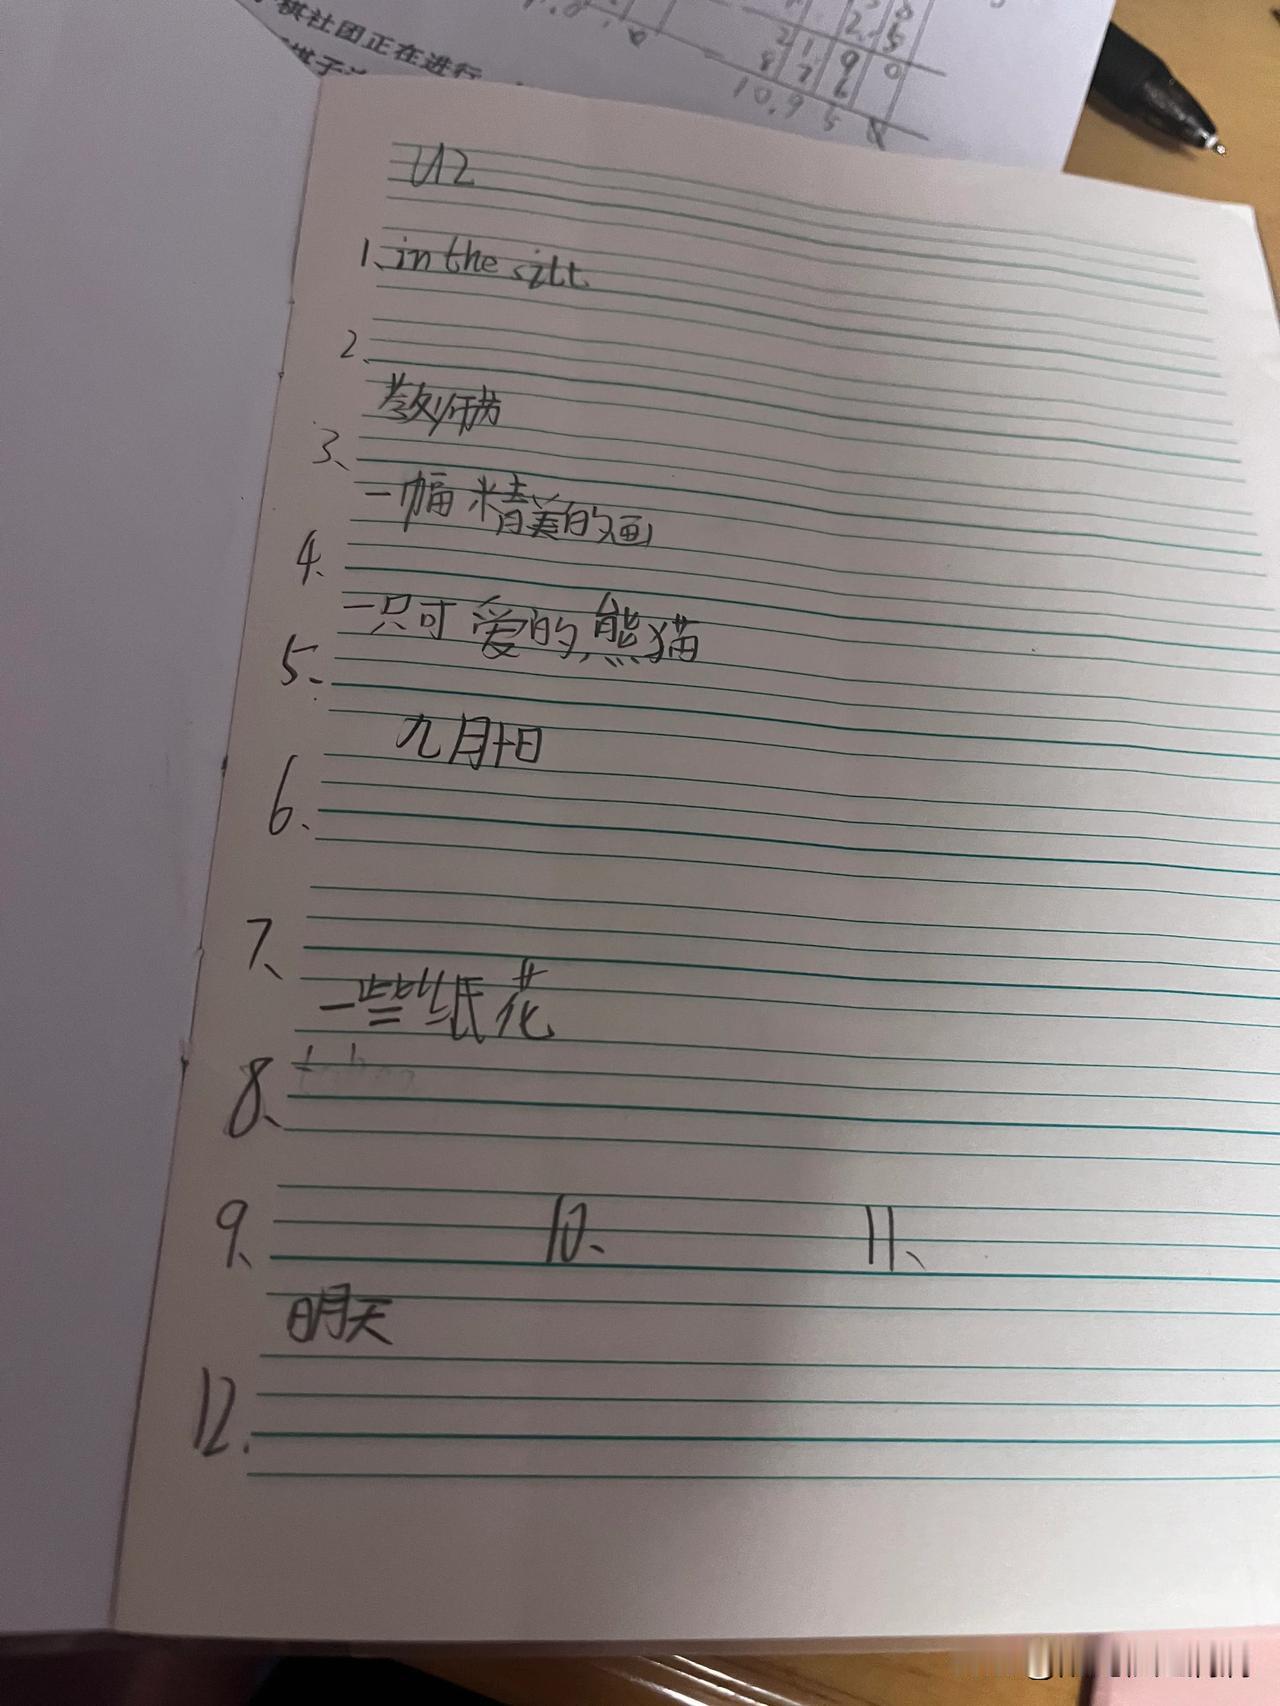 棋社团正在进行
棋子
10.9 5
U2
1、in the sitt.
2、
教师节
3、
一幅精美的画
4、
一只可爱的熊猫
5、
九月十日
6、
7、
一些纸花
8、
9、 10、 11、
明天
12、